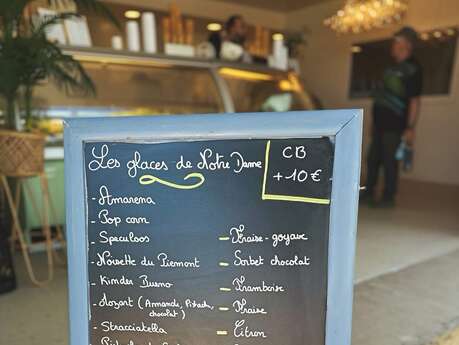 Les glaces de Notre Dame
CB
+10€
- Amarena
- Pop corn
- Speculoos
- Noisette du Piemont
- Kinder Bueno
- Mozart (Amande, Pistache, chocolat)
- Stracciatella
- Fraise-goyave
- Sorbet chocolat
- Framboise
- Fraise
- Citron